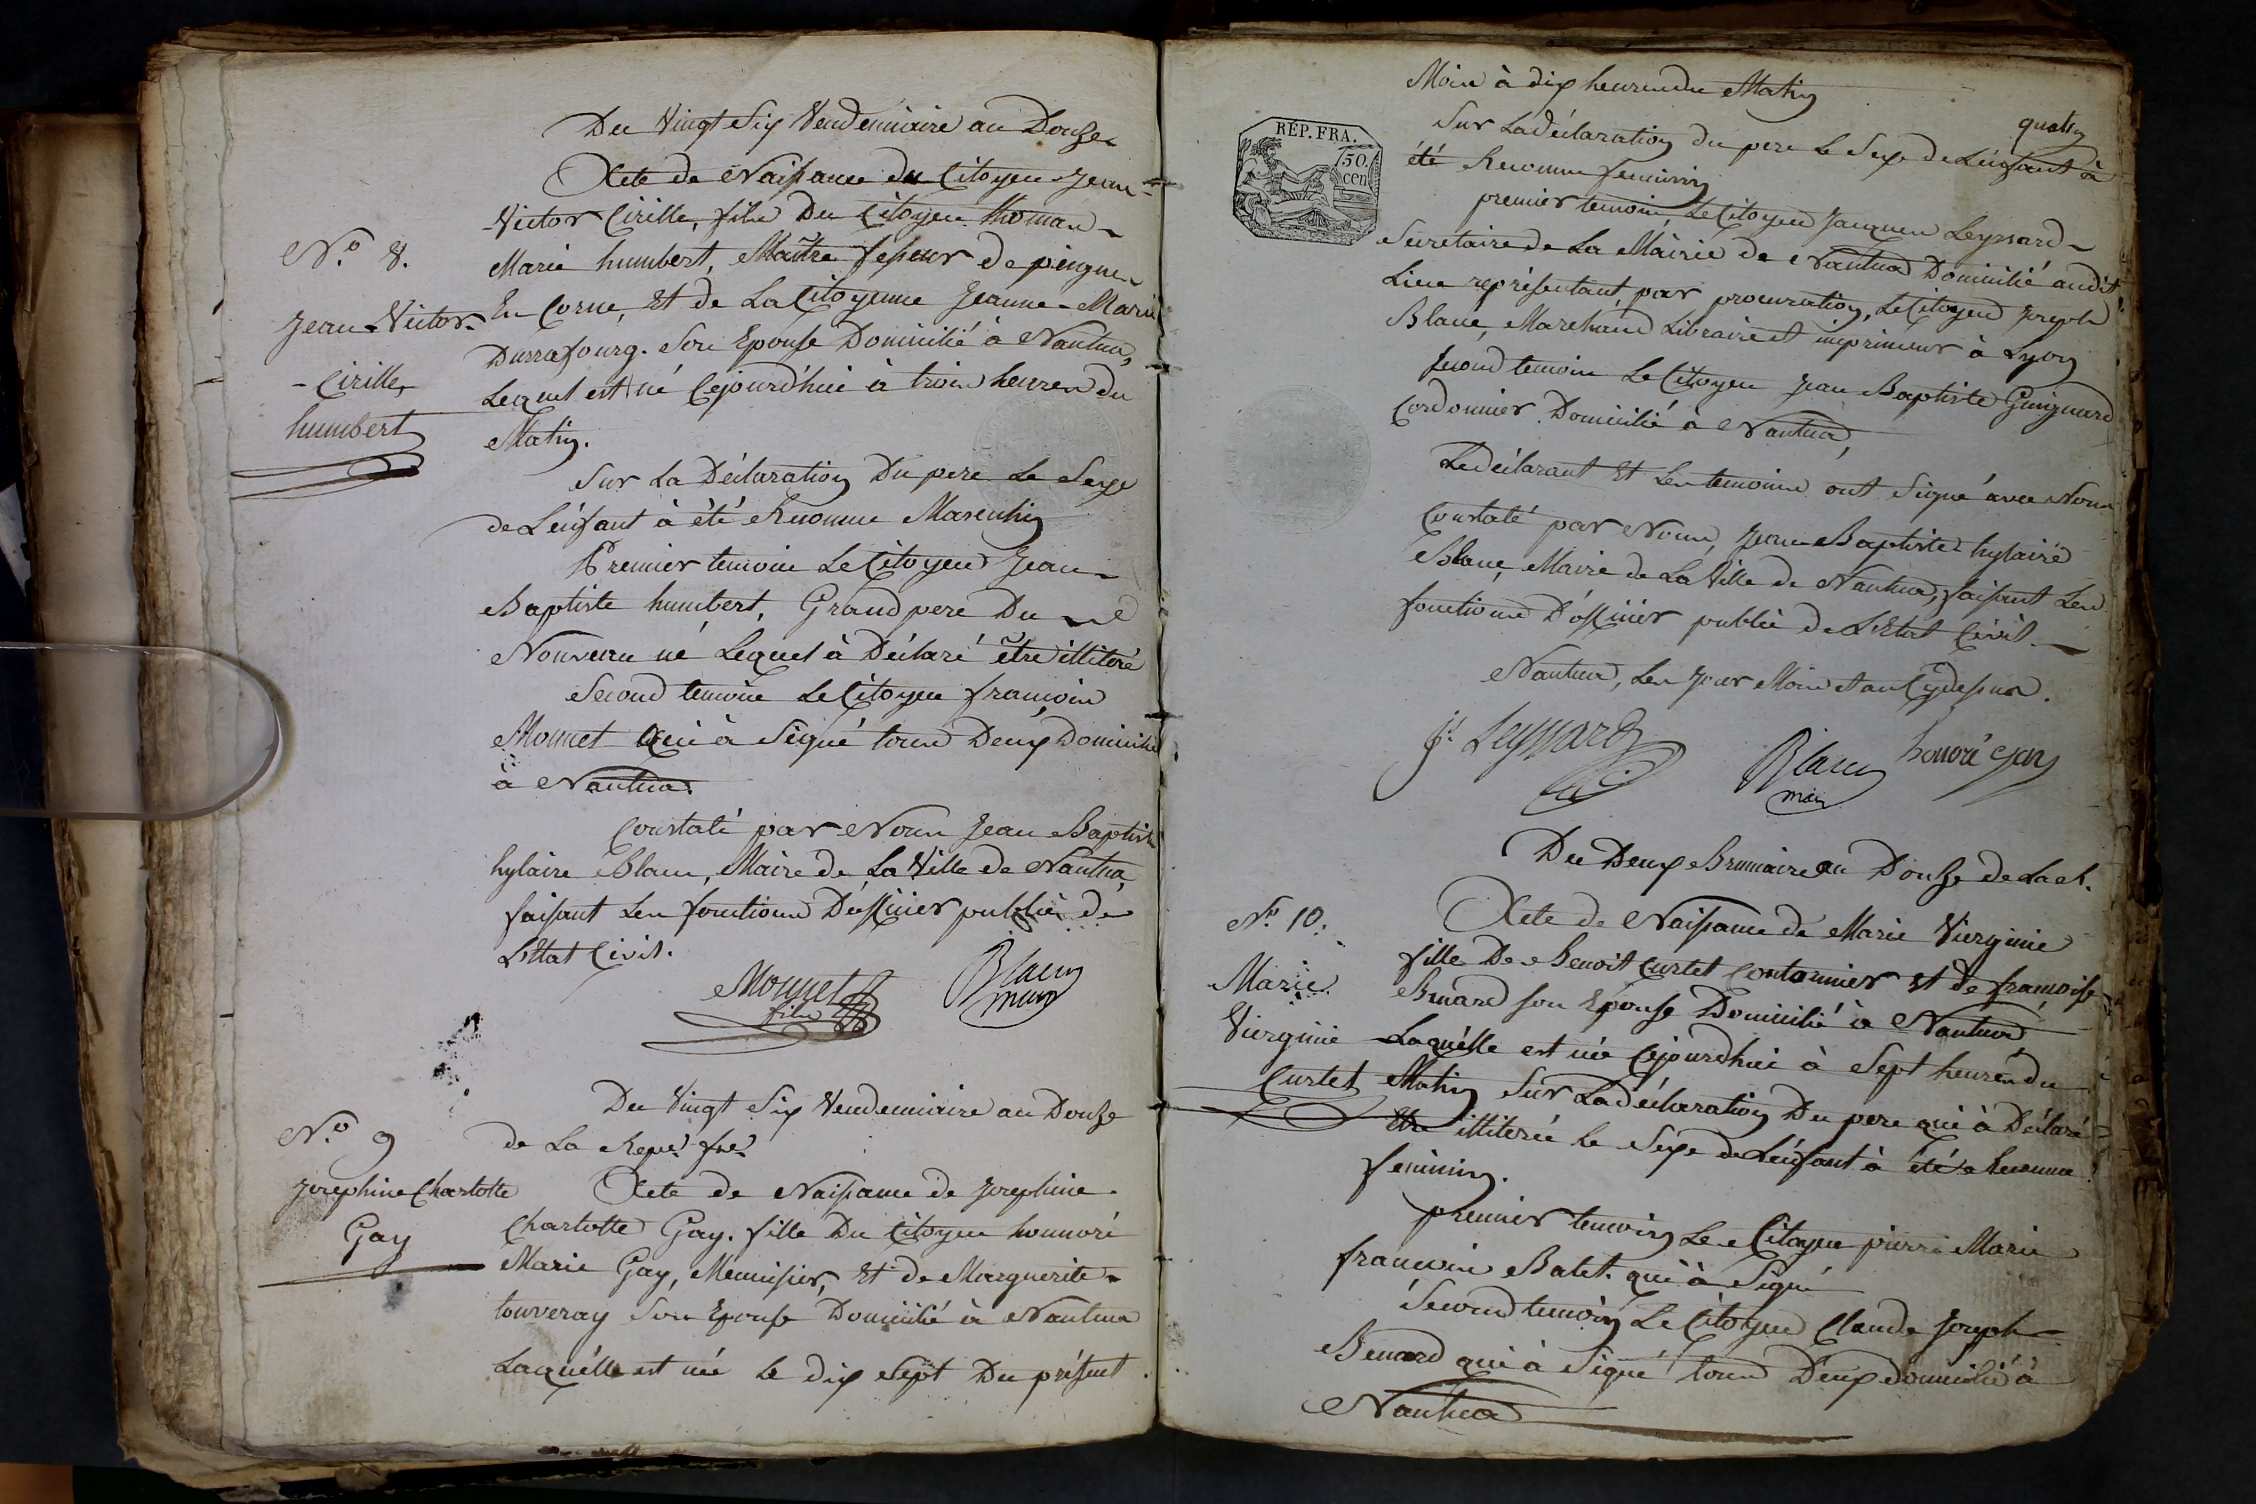 Du Vingt Six Vendemiaire an Douze
Acte de Naissance du Citoyen Jean-
Victor Cirille, fils Du Citoyen thomas
N.o 8.
Marie humbert, Maître faiseur de peignes
Jean-Victor-
En Corne, Et de La Citoyenne Jeanne-Marie
Son Epouse Domicilié à Nantua,
-Cirille
Lequel est né Cejourd'hui à trois heures du
humbert
Matin.
Sur La Déclaration Du pere Le Sexe
de L'énfant à été Reconnu Masculin
Premier temoin Le Citoyen Jean-
Baptiste humbert, Grand pere Du
Nouveau né Lequel à Déclaré être illiteré
Second temoin Le Citoyen françois
Monnet Qui à Signé tous Deux Domicilié
à Nantua.
Constaté par Nous Jean Baptiste
hylaire Blanc, Maire de La Ville de Nantua,
faisant Les fonctions D'officier public de
L'Etat Civil.
Monnet
fils
Blanc
maire
Du Vingt Six Vendemiaire an Douze
N.o 9
de La Repue. fse.
Josephine Charlotte
Acte de Naissance de Josephine
Gay
Charlotte Gay. fille Du Citoyen honnoré
Marie Gay, Menuisier, Et de Marguerite
touveray Son Epouse Domicilié à Nantua
Laquélle est née Le dix Sept Du présent
Mois à dix heures du Matin
quatre
RÉP. FRA.
50.
cen.
Sur La déclaration du pere Le Sexe de L'énfant à
été Reconnu feminin
premier temoin, Le Citoyen Jacques Leyssard
Secretaire de La Mairie de Nantua Domicilié audit
Lieu représentant par procuration, Le Citoyen Joseph
Blanc, Marchand Libraire et imprimeur à Lyon
Second temoin Le Citoyen Jean Baptiste Guignard
Cordonnier Domicilié à Nantua,
Le déclarant Et Les temoins ont Signé avec Nous
Constaté par Nous, Jean-Baptiste hylaire
Blanc, Maire de La Ville de Nantua, faisant Les
fonctions D'officier public de L'Etat Civil
Nantua, Les Jour Mois et an Cydessus.
Js. Leyssard
Blanc
maire
honoré gay
Du Deux Brumaire an Douze de La R.
N.o 10.
Acte de Naissance de Marie Virginie
Marie
fille De Benoit Curtet Cordonnier Et de françoise
Virginie
Benard son Epouse Domicilié à Nantua
Curtet
Laquélle est née Cejourdhui à Sept heures du
Matin Sur La déclaration Du pere qui à Déclaré
Etre illiteré Le Sexe de L'énfant à été Reconnu
feminin.
premier temoin Le Citoyen pierre Marie
francois Balet qui à Signé
Second temoin Le Citoyen Claude Joseph
Benard qui à Signé tous Deux domicilié à
Nantua